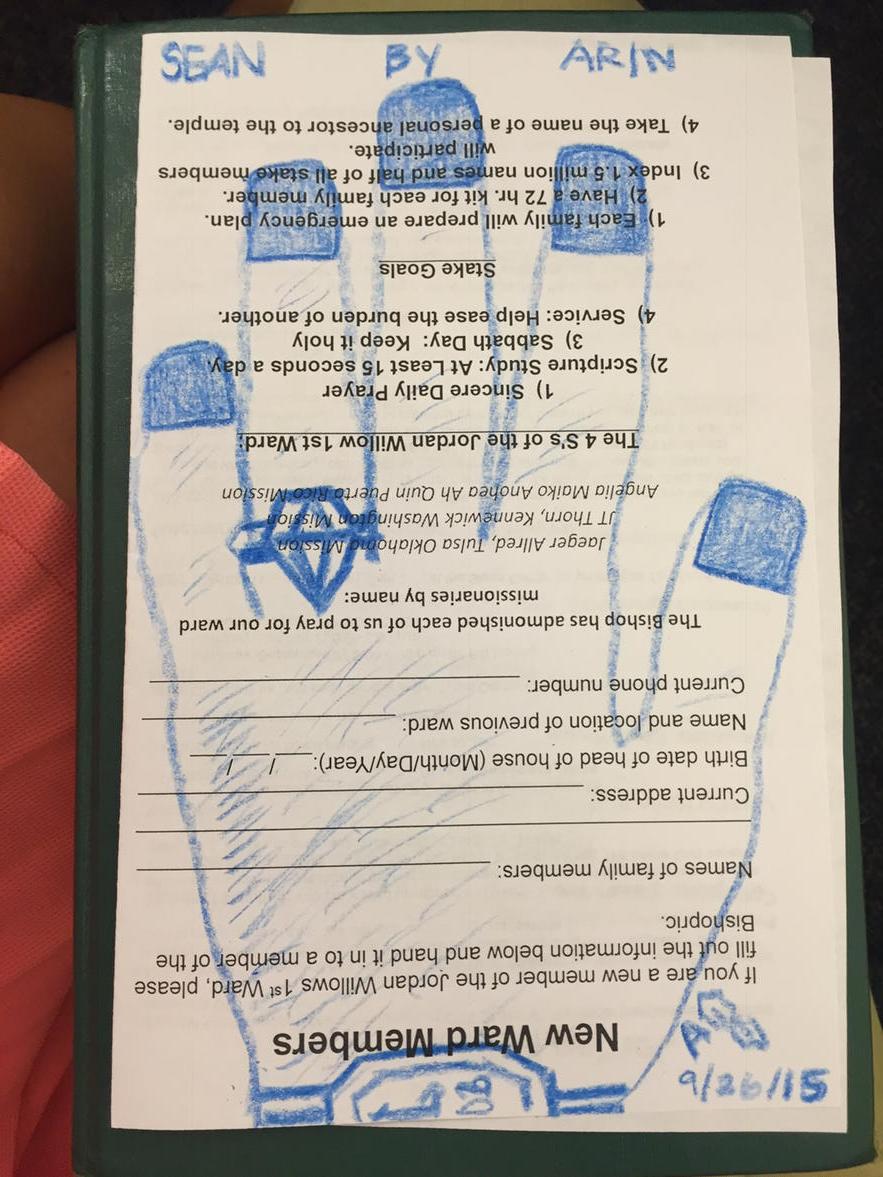 SEAN BY ARIN
New Ward Members
If you are a new member of the Jordan Willows 1st Ward, please
fill out the information below and hand it in to a member of the
Bishopric.
Names of family members:
Current address:
Birth date of head of house (Month/Day/Year): / /
Name and location of previous ward:
Current phone number:
The Bishop has admonished each of us to pray for our ward
missionaries by name:
Jaeger Allred, Tulsa Oklahoma Mission
JT Thorn, Kennewick Washington Mission
Angelia Maiko Anohea Ah Quin Puerto Rico Mission
The 4 S'S of the Jordan Willow 1st Ward:
1) Sincere Daily Prayer
2) Scripture Study: At Least 15 seconds a day.
3) Sabbath Day: Keep it holy
4) Service: Help ease the burden of another.
Stake Goals
1) Each family will prepare an emergency plan.
2) Have a 72 hr. kit for each family member.
3) Index 1.5 million names and half of all stake members
will participate.
4) Take the name of a personal ancestor to the temple.
9/26/15